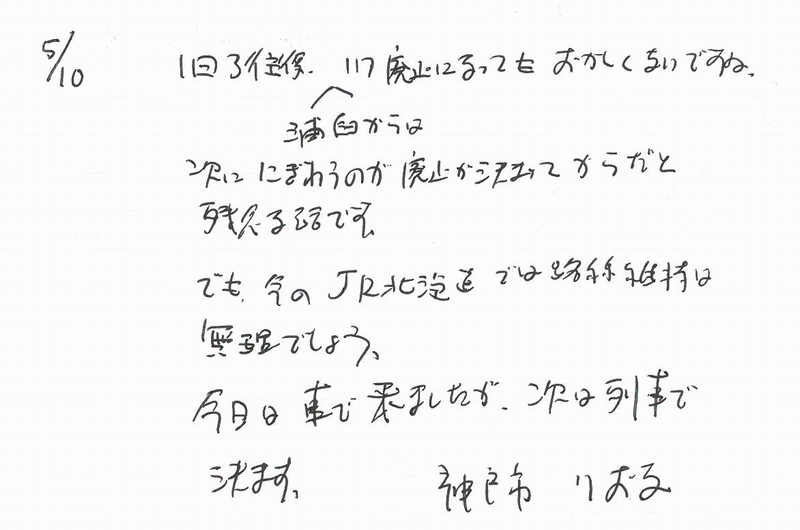 5/10
1日3往復、いつ廃止になってもおかしくないですね。
浦臼からは
次ににぎわうのが廃止が決まってからだと
残念な話です。
でも、今のJR北海道では路線維持は
無理でしょう。
今日は車で来ましたが、次は列車で
来ます。 神戸市